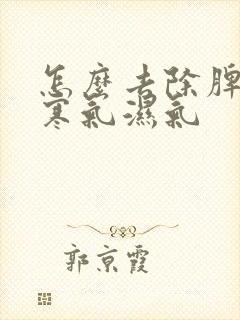 怎麼去除脾
寒氣濕氣
郭京霞